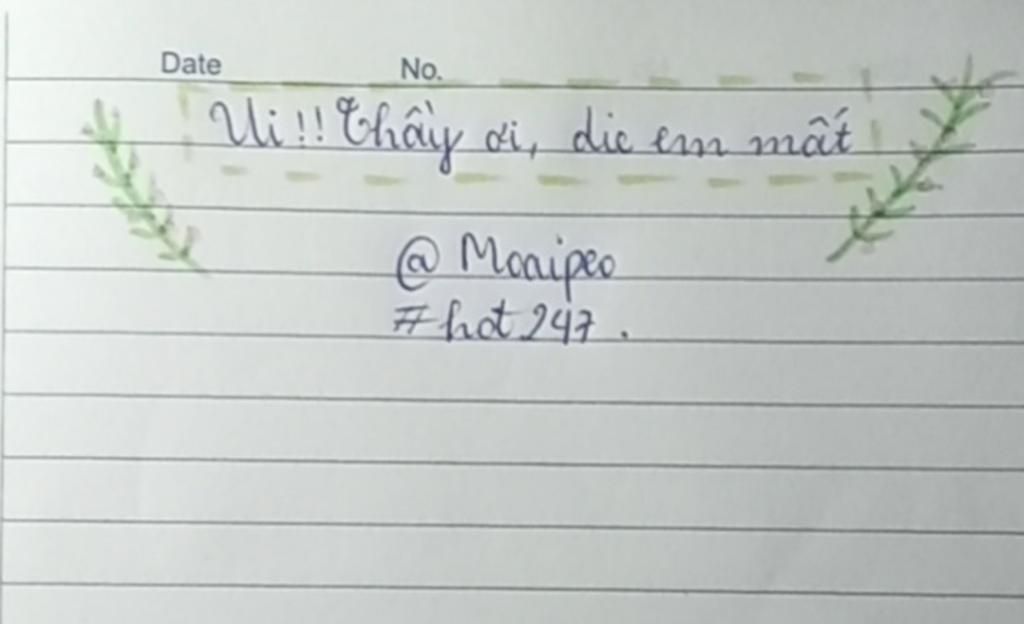 Date No.
Ui!! Thầy ơi, die em mất
@ Moaipeo
#hot247.